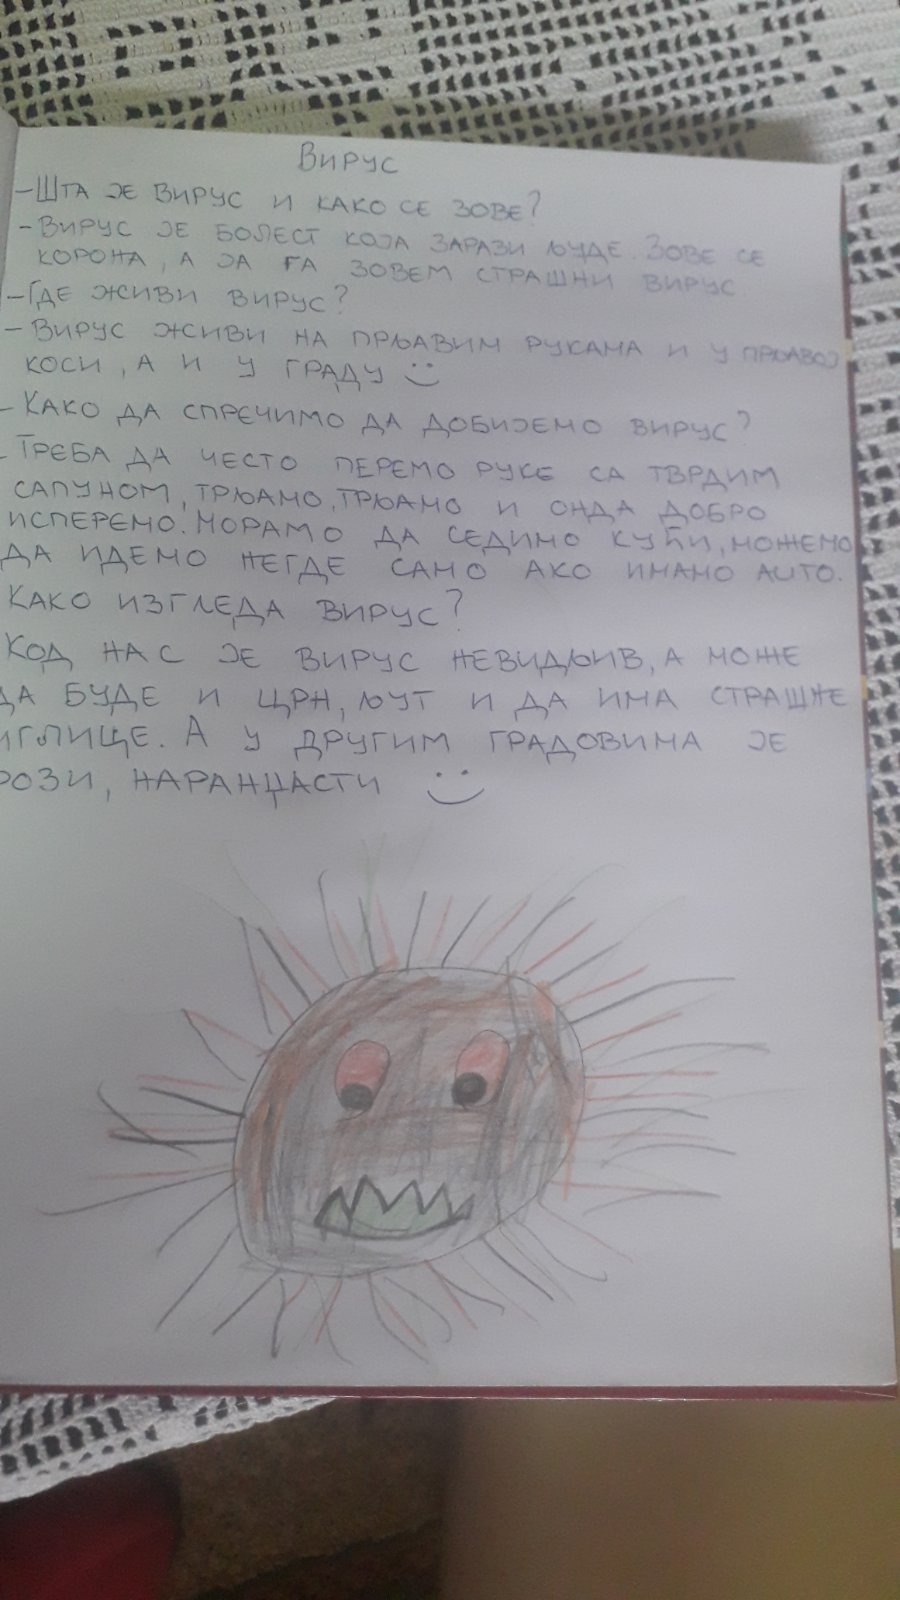 Вирус
-Шта је вирус и како се зове?
-Вирус је болест која зарази људе. Зове се
корона, а ја га зовем страшни вирус.
-Где живи вирус?
- Вирус живи на прљавим рукама и у прљавој
коси, а и у граду
- Како да спречимо да добијемо вирус?
- Треба да често перемо руке са тврдим
сапуном, трљамо, трљамо и онда добро
исперемо. Морамо да седимо кући, можемо
да идемо негде само ако имамо ауто.
Како изгледа вирус?
Код нас је вирус невидљив, а може
да буде и црн, љут и да има страшне
иглице. А у другим градовима је
рози, наранџасти